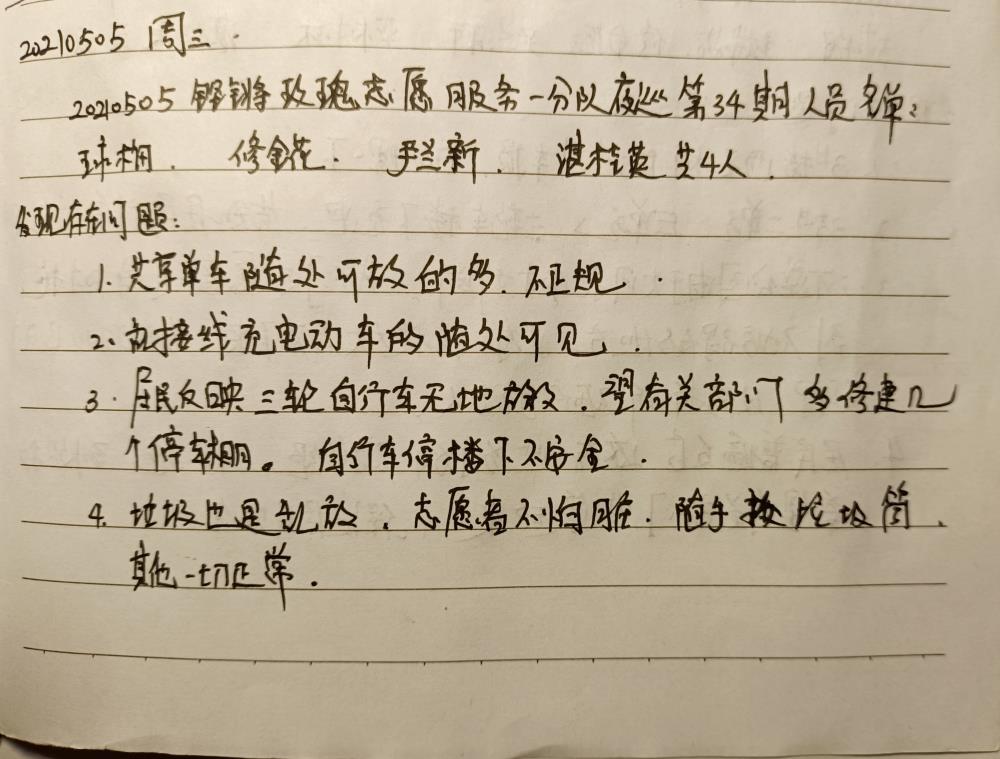 20210505 周三.
20210505 铿锵玫瑰志愿服务一分队夜巡第34期人员名单:
球桐. 修金花. 尹兰新. 湛桂英 共4人.
发现存在问题:
1. 共享单车随处可放的多. 不正规.
2. 直接线充电动车的随处可见.
3. 居民反映三轮自行车无地放. 望有关部门多修建几
个停车棚。自行车停楼下不安全.
4. 垃圾也是乱放. 志愿者不怕脏. 随手捡垃圾筒.
其他一切正常.